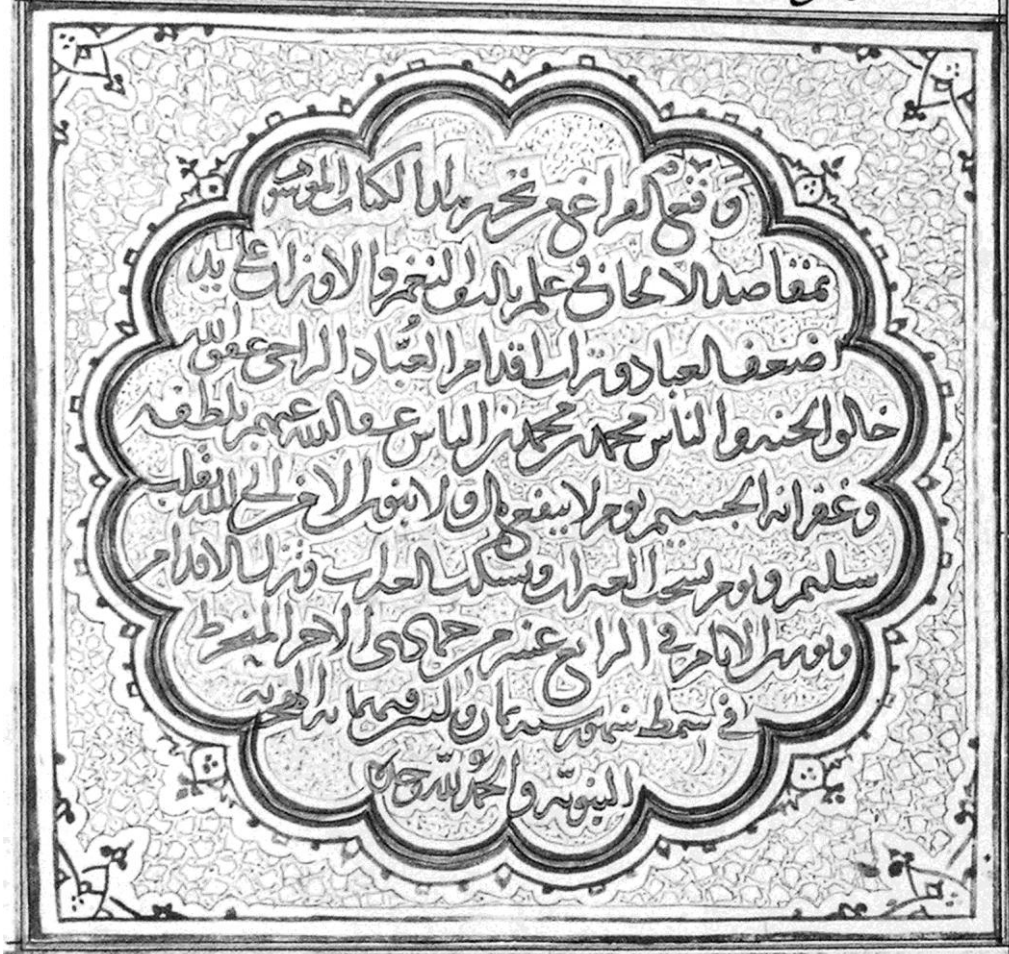 وقع الفراغ من تحرير هذا الكتاب الموسوم
بمقاصد الالحان في علم تاليف النغم والاوزان على يد
اضعف العباد وتراب اقدام العُبّاد الراجى عفو الله
خالق الجنه والناس محمد بن محمد بن الياس عفا الله عنهم بلطفه
وغفرانه الجسيم يوم لا ينفع مال ولا بنون الا من اتى الله بقلب
سليم ويوم العبرات وتسكب وتزل الاقدام
الايام في الرابع عشر من جمادى الاخر المنخرط
في سمط شهور سنه ثمان وثمانمايه الهجريه
النبويّه والحمدُ للّه حق